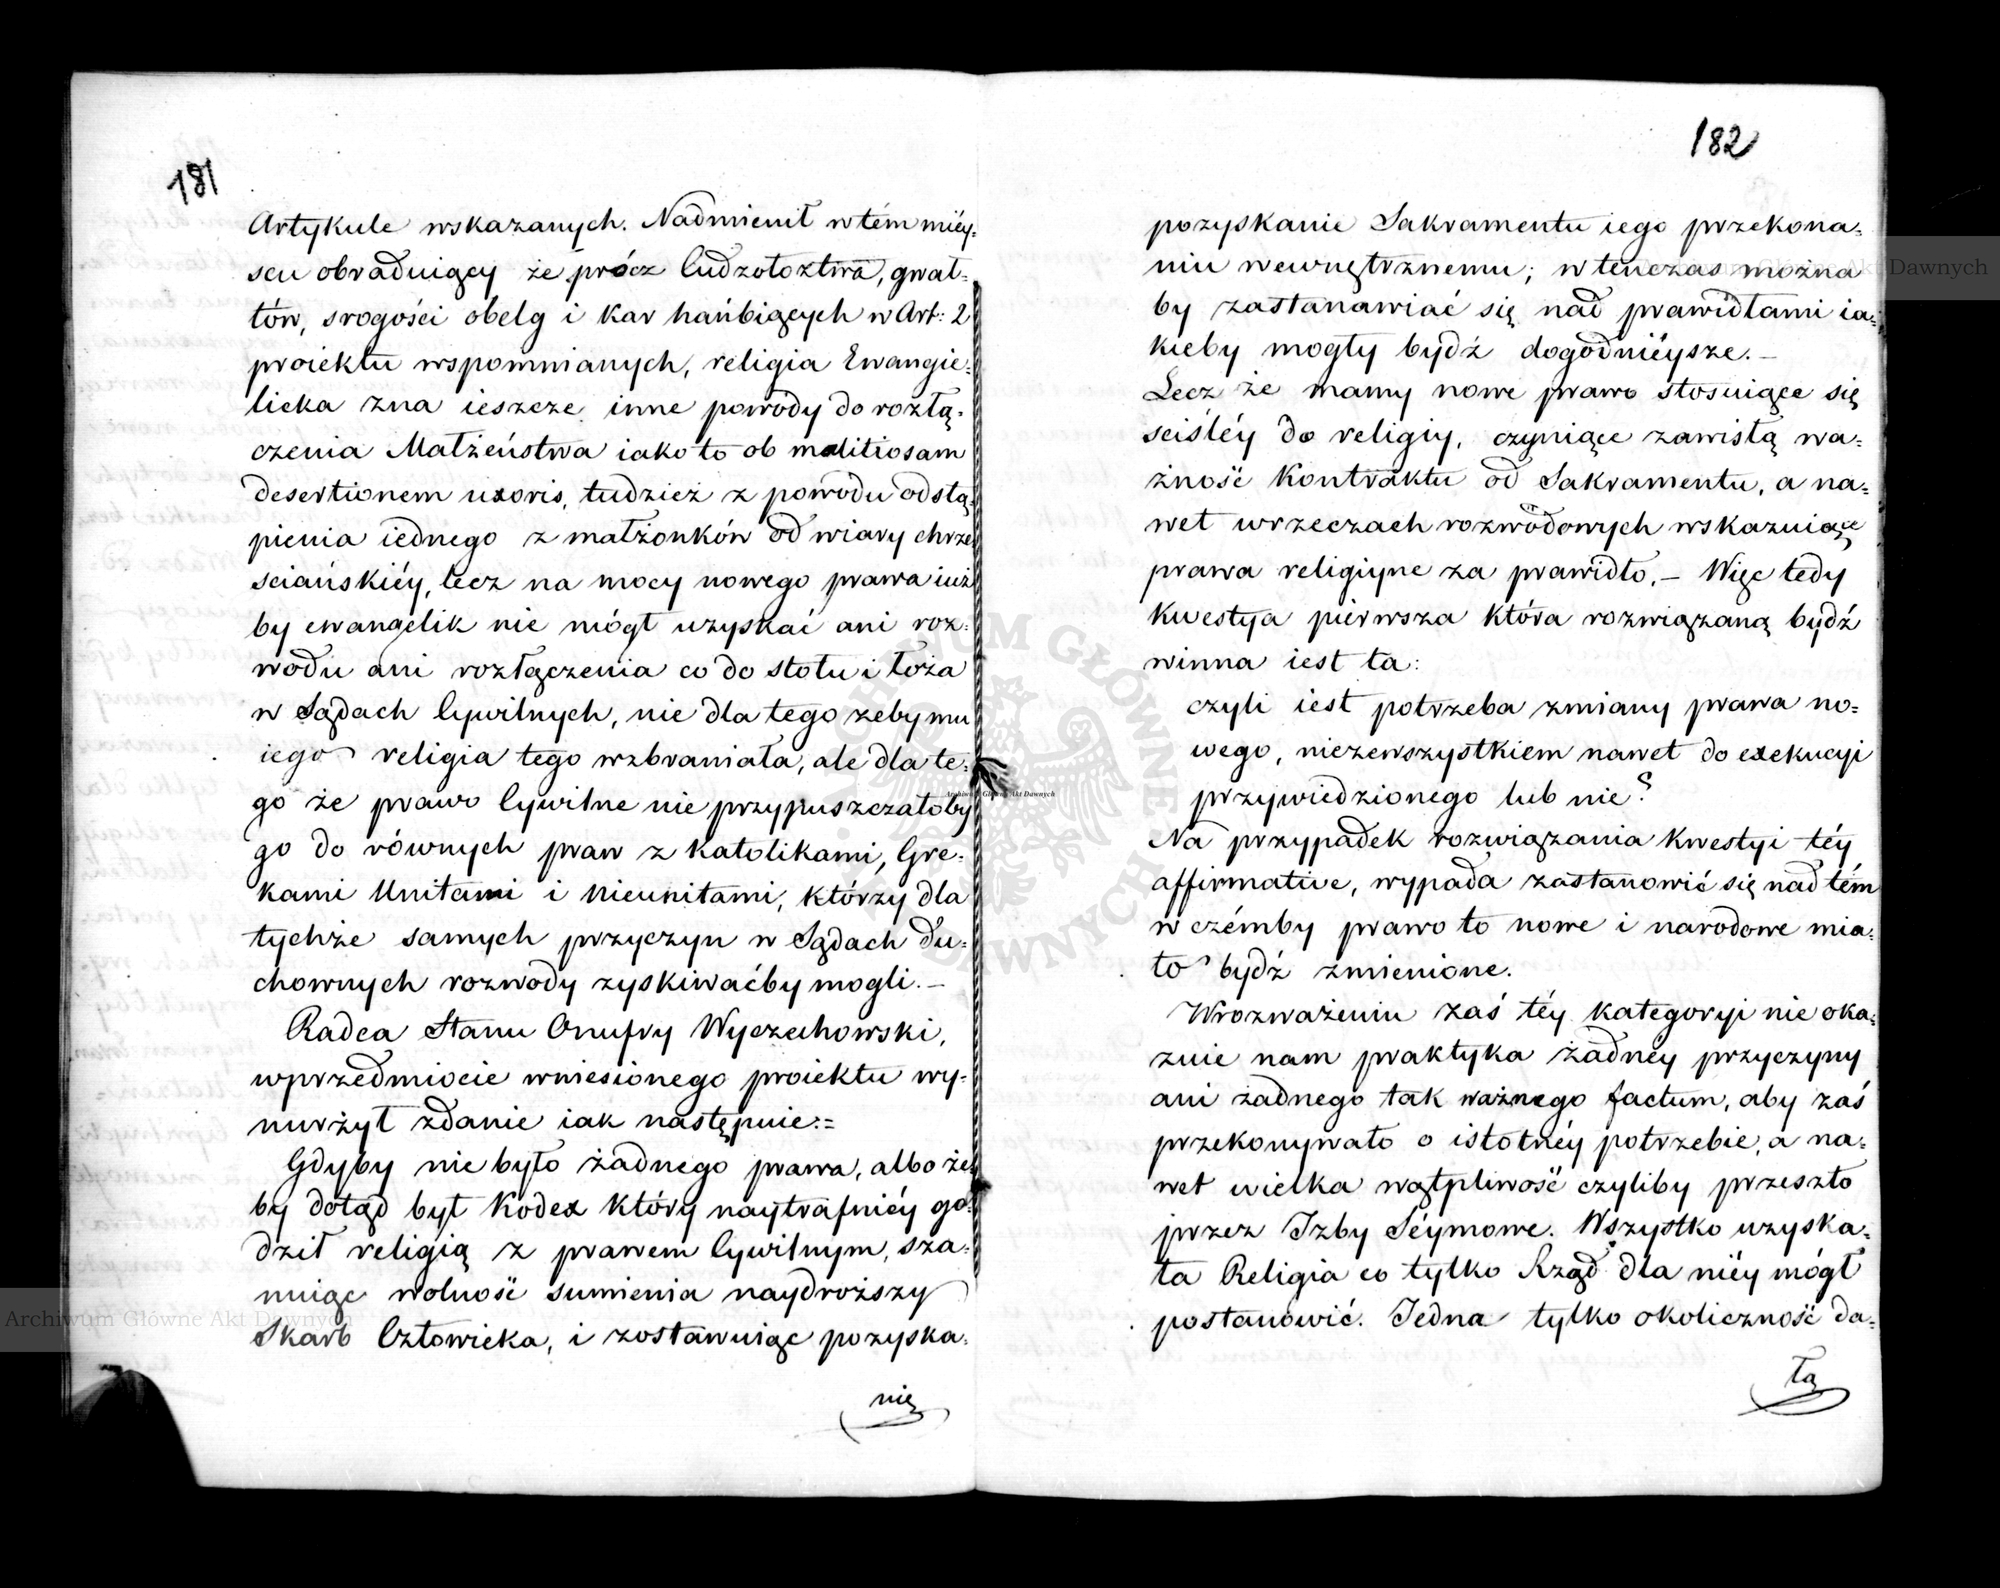 181
Artykule wskazanych. Nadmienił w tém miéy=
scu obraduiący że prócz Cudzołoztwa, gwał=
tów, srogości obelg i kar hańbiących w Art: 2
proiektu wspomnianych, religia Ewangie=
licka zna ieszcze inne powody do rozłą=
czenia Małżeństwa iako to ob malitiosam
desertionem uxoris, tudzież z powodu odstą=
pienia iednego z małżonków od wiary chrze
sciańskiéy, lecz na mocy nowego prawa iuż
by ewangelik nie mógł uzyskać ani roz=
wodu ani rozłączenia co do stołu i łoża
w Sądach Cywilnych, nie dla tego żeby mu
iego religia tego wzbraniała, ale dla te=
go że prawo Cywilne nie przypuszczałoby
go do równych praw z Katolikami, Gre=
kami Unitami i Nieunitami, którzy dla
tychże samych przyczyn w Sądach du=
chownych rozwody zyskiwaćby mogli.—
Radca Stanu Onufry Wyczechowski,
w przedmiocie wniesionego proiektu wy=
nurżył zdanie iak następuie:=
Gdyby nie było żadnego prawa, albo że=
by dotąd był Kodex który naytrafniéy go=
dził religią z prawem Cywilnym, sza=
nuiąc wolność sumienia naydroższy
Skarb Człowieka, i zostawuiąc pozyska=
nie
182
pozyskanie Sakramentu iego przekona=
niu wewnętrznemu; w tenczas można
by zastanawiać się nad prawidłami ia=
kieby mogły bydź dogodniéysze.—
Lecz że mamy nowe prawo stosuiące się
sciśléy do religiy, czyniące zawisłą wa=
żność Kontraktu od Sakramentu, a na=
wet w rzeczach rozwodowych wskazuiące
prawa religiyne za prawidło.— Więc tedy
Kwestya pierwsza która rozwiązaną bydź
winna iest ta:
czyli iest potrzeba zmiany prawa no=
wego, niezewszystkiem nawet do exekucyi
przywiedzionego lub nie?
Na przypadek rozwiązania Kwestyi téy
affirmative, wypada zastanowić się nad tém
w czémby prawo to nowe i narodowe mia=
ło bydź zmienione.
W rozważeniu zaś téy kategoryi nie oka=
zuie nam praktyka żadney przyczyny
ani żadnego tak ważnego factum, aby zaś
przekonywało o istotnéy potrzebie, a na=
wet wielka wątpliwość czyliby przeszło
przez Izby Séymowe. Wszystko uzyska=
ła Religia co tylko Rząd dla niéy mógł
postanowić. Jedna tylko okoliczność da=
ła
Archiwum Główne Akt Dawnych
Archiwum Główne Akt Dawnych
Archiwum Główne Akt Dawnych
ARCHIWUM GŁÓWNE AKT DAWNYCH